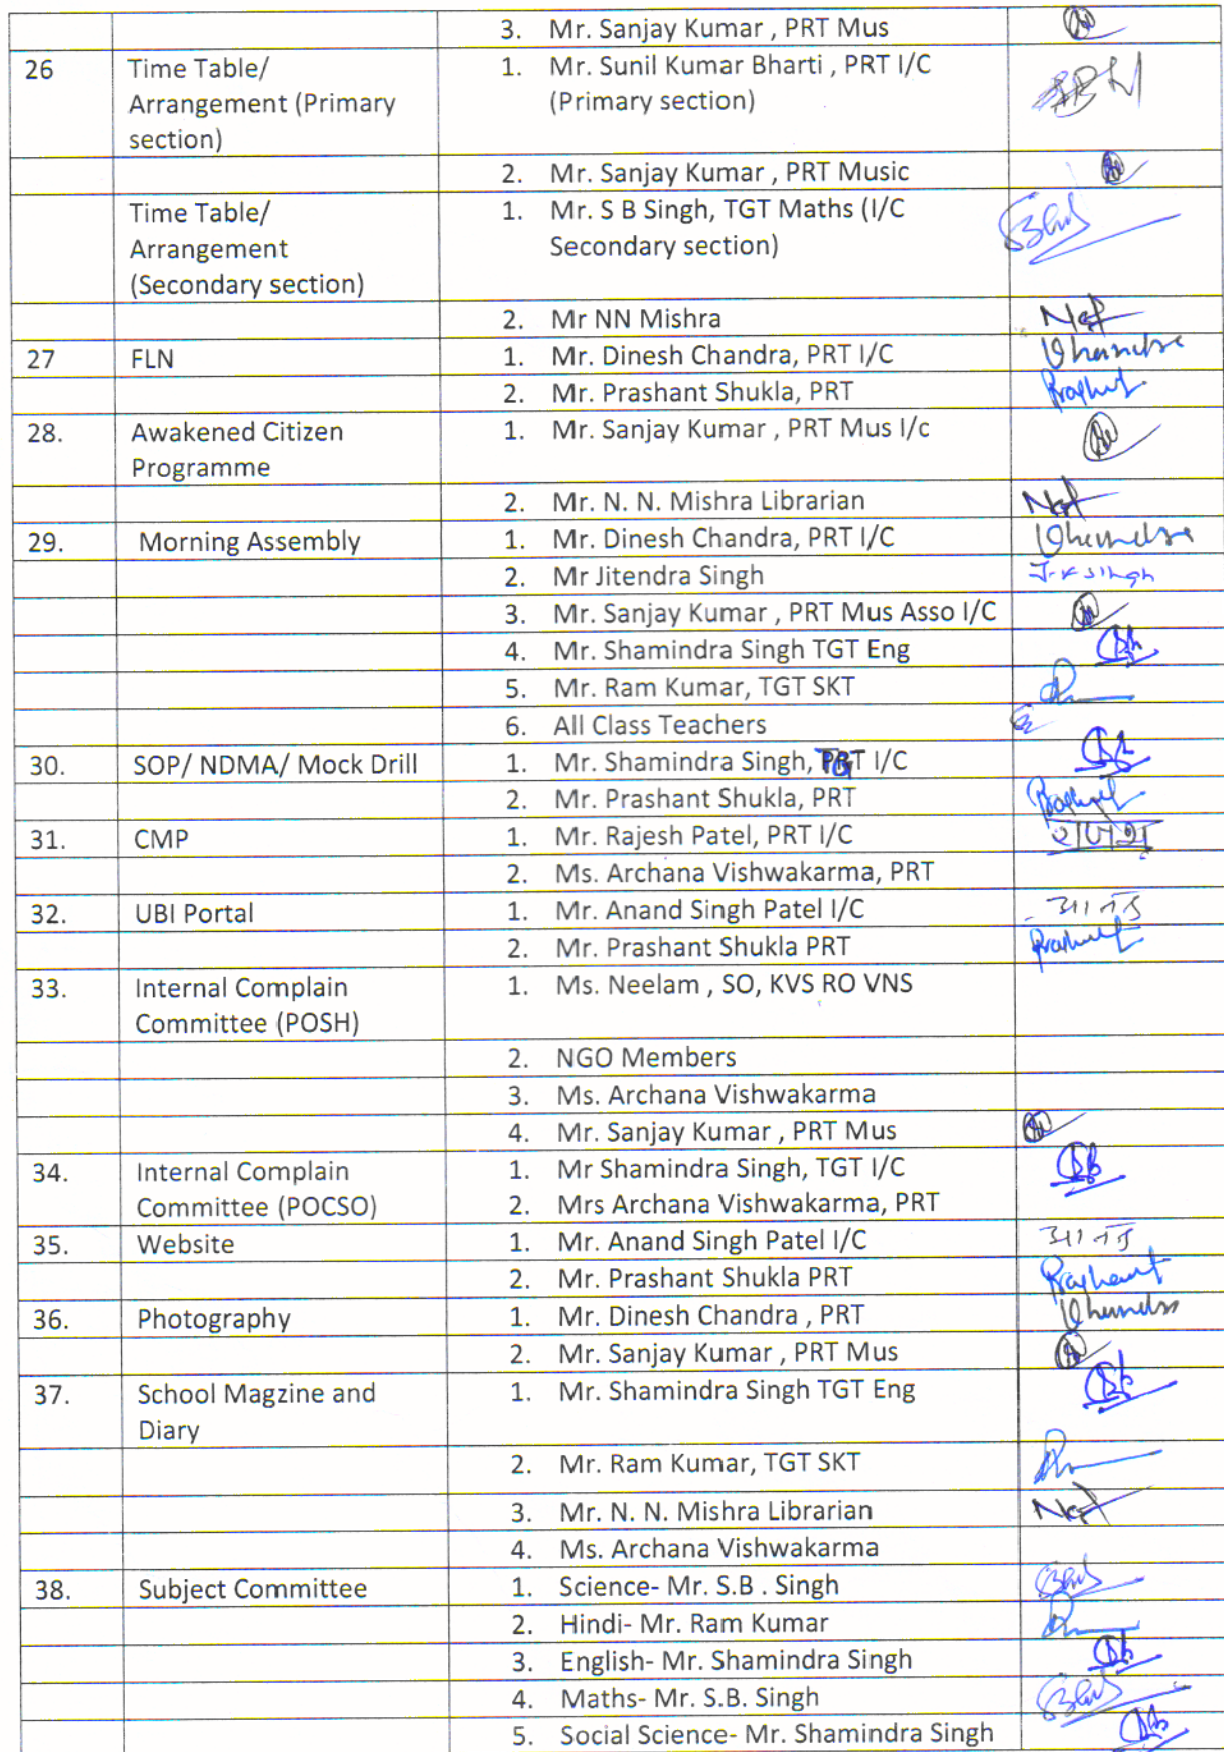 3. Mr. Sanjay Kumar , PRT Mus
26 Time Table/ 1. Mr. Sunil Kumar Bharti , PRT I/C
Arrangement (Primary (Primary section)
section)
2. Mr. Sanjay Kumar , PRT Music
Time Table/ 1. Mr. S B Singh, TGT Maths (I/C
Arrangement Secondary section)
(Secondary section)
2. Mr NN Mishra
27 FLN 1. Mr. Dinesh Chandra, PRT I/C
2. Mr. Prashant Shukla, PRT
28. Awakened Citizen 1. Mr. Sanjay Kumar , PRT Mus I/c
Programme
2. Mr. N. N. Mishra Librarian
29. Morning Assembly 1. Mr. Dinesh Chandra, PRT I/C
2. Mr Jitendra Singh J.K Singh
3. Mr. Sanjay Kumar , PRT Mus Asso I/C
4. Mr. Shamindra Singh TGT Eng
5. Mr. Ram Kumar, TGT SKT
6. All Class Teachers
30. SOP/ NDMA/ Mock Drill 1. Mr. Shamindra Singh, TGT I/C
2. Mr. Prashant Shukla, PRT
31. CMP 1. Mr. Rajesh Patel, PRT I/C
2. Ms. Archana Vishwakarma, PRT
32. UBI Portal 1. Mr. Anand Singh Patel I/C
2. Mr. Prashant Shukla PRT
33. Internal Complain 1. Ms. Neelam , SO, KVS RO VNS
Committee (POSH)
2. NGO Members
3. Ms. Archana Vishwakarma
4. Mr. Sanjay Kumar , PRT Mus
34. Internal Complain 1. Mr Shamindra Singh, TGT I/C
Committee (POCSO) 2. Mrs Archana Vishwakarma, PRT
35. Website 1. Mr. Anand Singh Patel I/C
2. Mr. Prashant Shukla PRT
36. Photography 1. Mr. Dinesh Chandra , PRT
2. Mr. Sanjay Kumar , PRT Mus
37. School Magzine and 1. Mr. Shamindra Singh TGT Eng
Diary
2. Mr. Ram Kumar, TGT SKT
3. Mr. N. N. Mishra Librarian
4. Ms. Archana Vishwakarma
38. Subject Committee 1. Science- Mr. S.B . Singh
2. Hindi- Mr. Ram Kumar
3. English- Mr. Shamindra Singh
4. Maths- Mr. S.B. Singh
5. Social Science- Mr. Shamindra Singh